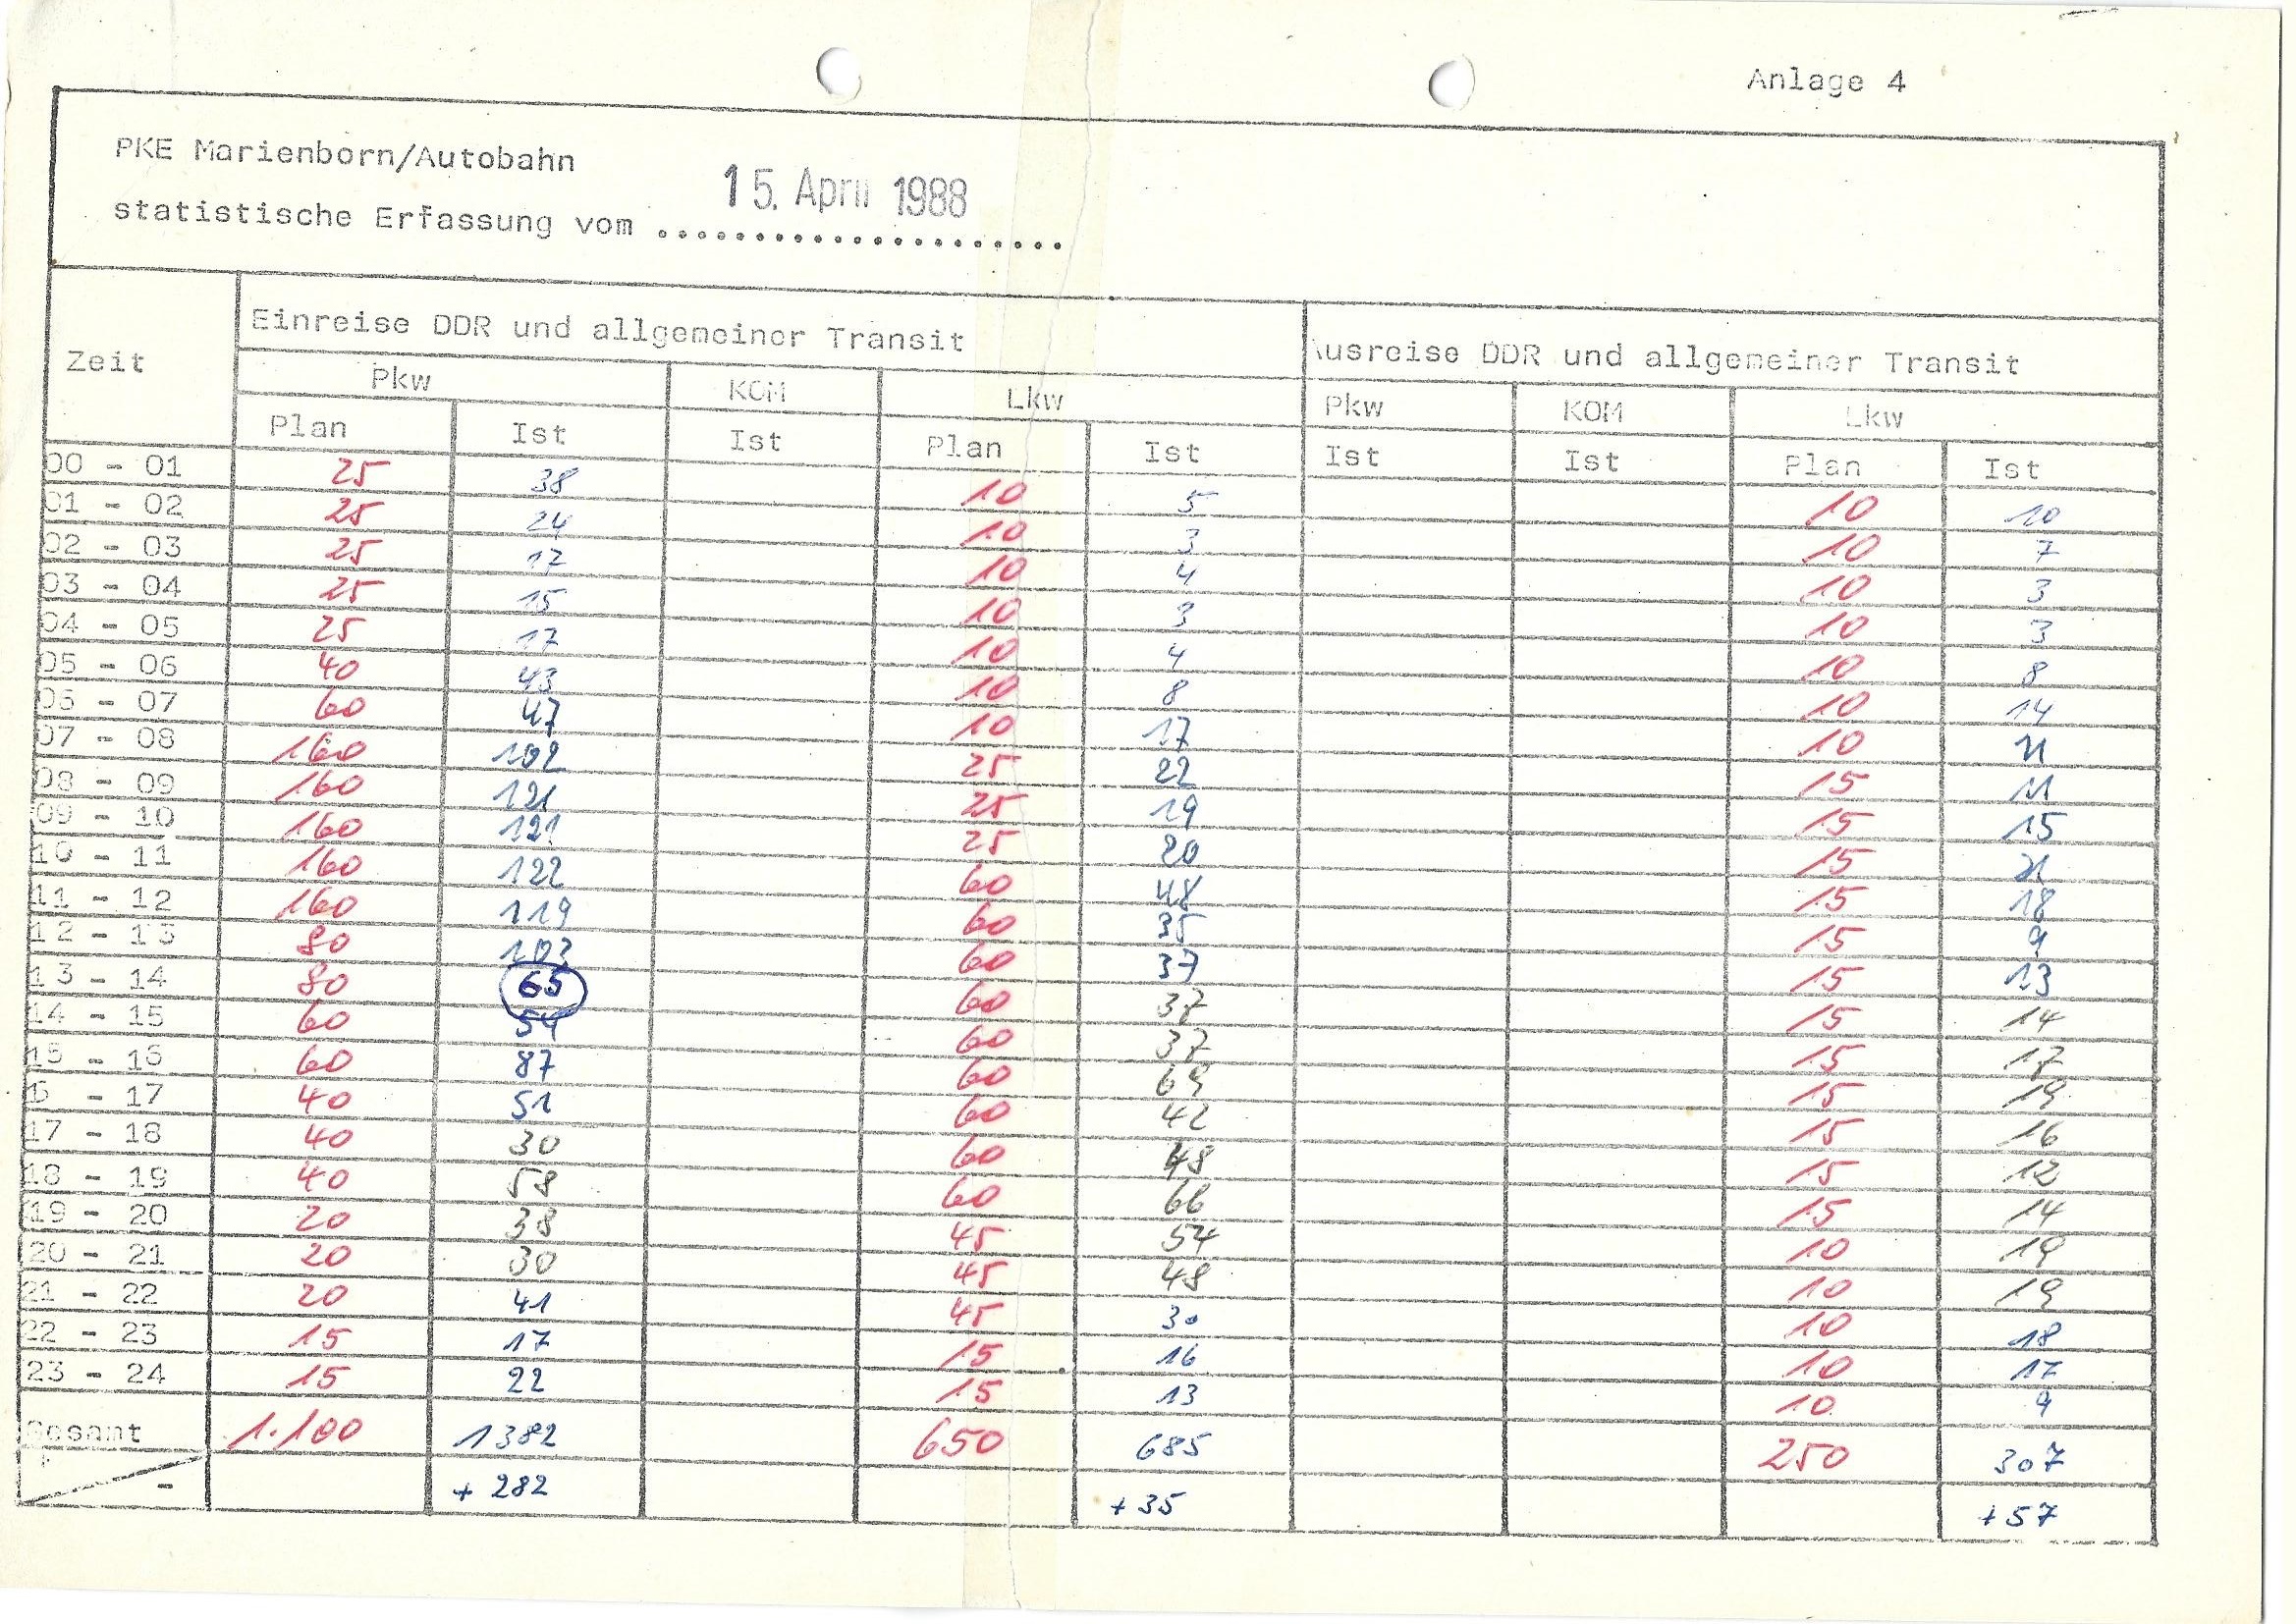 Anlage 4
PKE Marienborn/Autobahn
statistische Erfassung vom 15. April 1988
Zeit
Einreise DDR und allgemeiner Transit
Ausreise DDR und allgemeiner Transit
Pkw KOM Lkw Pkw KOM Lkw
Plan Ist Ist Plan Ist Ist Ist Plan Ist
00 - 01 25 38 10 5 10 10
01 - 02 25 24 10 3 10 7
02 - 03 25 17 10 4 10 3
03 - 04 25 15 10 3 10 3
04 - 05 25 17 10 4 10 8
05 - 06 40 43 10 8 10 14
06 - 07 60 47 10 17 10
07 - 08 160 102 25 22 15 11
08 - 09 160 121 25 19 15 15
09 - 10 160 121 25 20 15
10 - 11 160 122 60 48 15 18
11 - 12 160 119 60 35 15 9
12 - 13 80 103 60 37 15 13
13 - 14 80 65 60 37 15 14
14 - 15 60 54 60 37 15 17
15 - 16 60 87 60 69 15 19
6 - 17 40 51 60 42 15 16
17 - 18 40 30 60 48 15 12
18 - 19 40 58 60 66 15 14
19 - 20 20 38 45 54 10 19
20 - 21 20 30 45 48 10 19
21 - 22 20 41 45 30 10 18
22 - 23 15 17 15 16 10 17
23 - 24 15 22 15 13 10 9
Gesamt 1.100 1382 650 685 250 307
- + 282 + 35 + 57